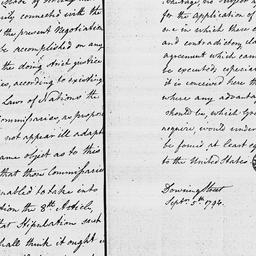 ily connected with the
the present Negotiation
be accomplished on any
the doing strict justice
ies, according to existing
Laws of Nations the
Commissaries, as propose
not appear ill adapt
ame object as to this
that those Commissaries
enabled to take into
tion the 8th. Article,
that Stipulation sent
shall think it ought
for the application of
one in which there c
and contradictory cla
agreement which cann
be executed, especia
it is conceived here th
where any advantag
should lie, which Gr
acquire, would under
be found, at least eq
to the United States.
Downing Street
Sept. 5th 1794.